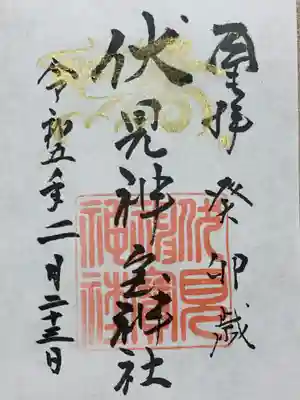 奉拝 癸卯歳
伏見神宝神社
令和五年二月二十三日
伏見神宝神社